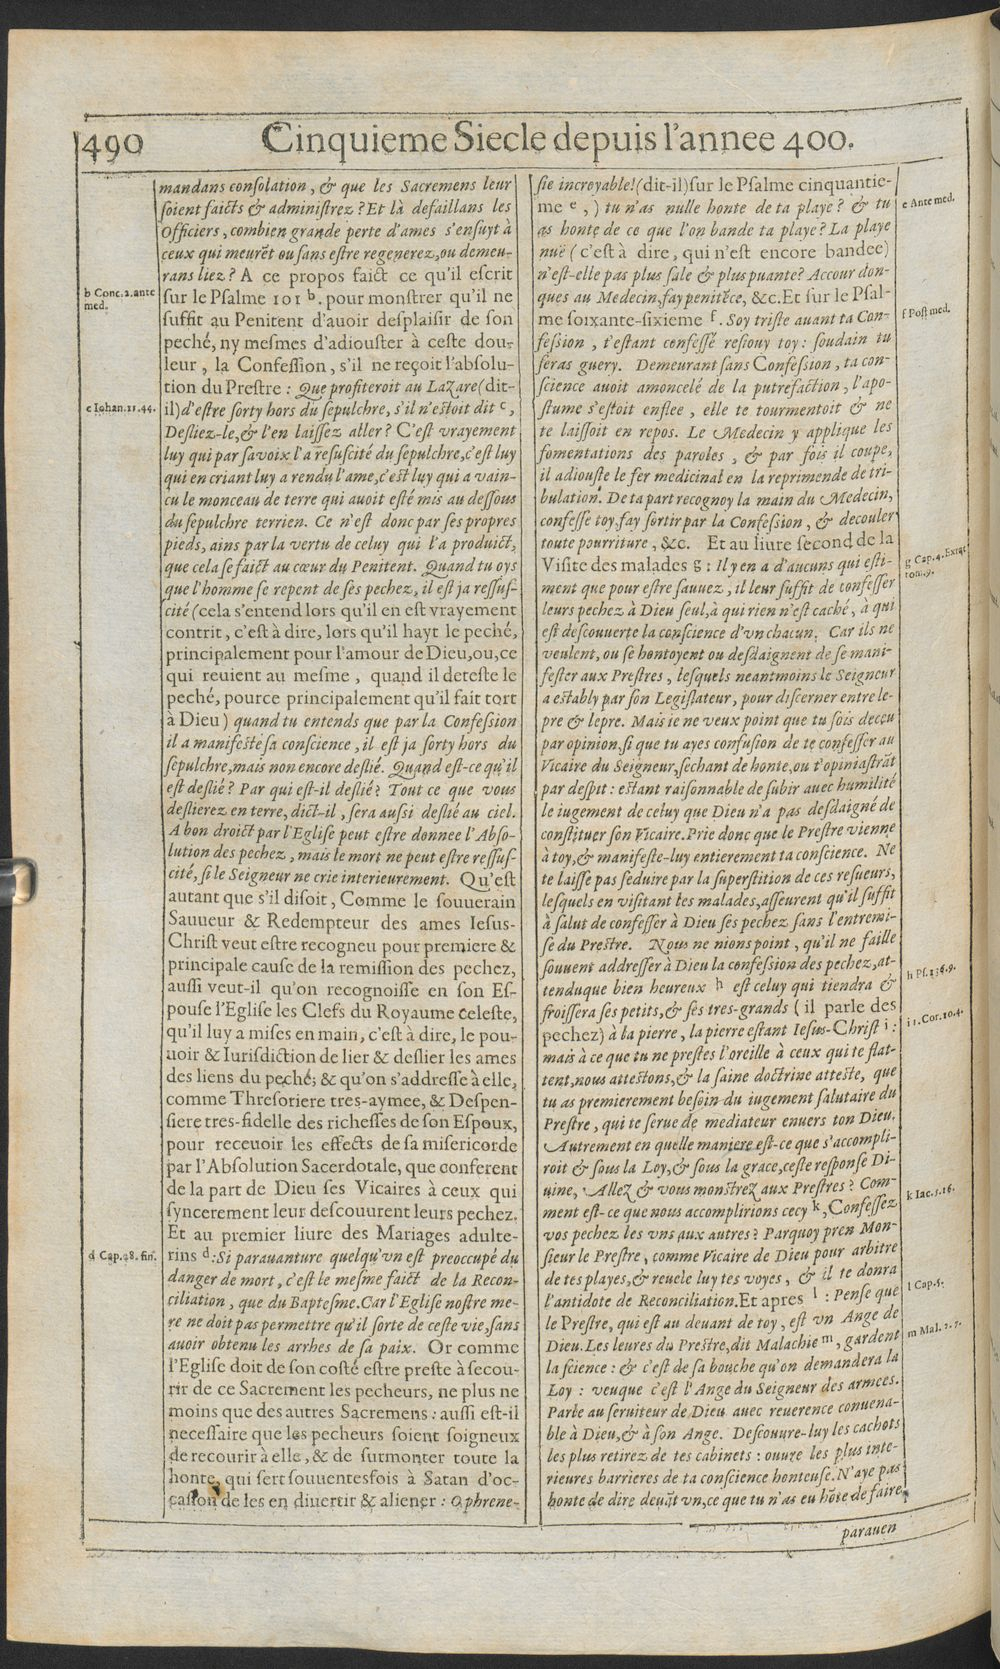 490 Cinquieme Siecle depuis l'annee 400.
mandans consolation, & que les Sacremens leur
soient faicts & administrez? Et là defaillans les
Officiers, combien grande perte d'ames s'ensuyt à
ceux qui meurẽt ou sans estre regenerez, ou demeu-
rans liez? A ce propos faict ce qu'il escrit
b Conc. 2. ante
med.
sur le Psalme 101 b. pour monstrer qu'il ne
suffit au Penitent d'auoir desplaisir de son
peché, ny mesmes d'adiouster à ceste dou-
leur, la Confession, s'il ne reçoit l'absolu-
tion du Prestre: Que profiteroit au Lazare (dit-
c Iohan. 11. 44.
il) d'estre sorty hors du sepulchre, s'il n'estoit dit c,
Desliez-le, & l'en laissez aller? C'est vrayement
luy qui par sa voix l'a resuscité du sepulchre, c'est luy
qui en criant luy a rendu l'ame, c'est luy qui a vain-
cu le monceau de terre qui auoit esté mis au dessous
du sepulchre terrien. Ce n'est donc par ses propres
pieds, ains par la vertu de celuy qui l'a produict,
que cela se faict au cœur du Penitent. Quand tu oys
que l'homme se repent de ses pechez, il est ja ressus-
cité (cela s'entend lors qu'il en est vrayement
contrit, c'est à dire, lors qu'il hayt le peché,
principalement pour l'amour de Dieu, ou, ce
qui reuient au mesme, quand il deteste le
peché, pource principalement qu'il fait tort
à Dieu) quand tu entends que par la Confession
il a manifesté sa conscience, il est ja sorty hors du
sepulchre, mais non encore deslié. Quand est-ce qu'il
est deslié? Par qui est-il deslié? Tout ce que vous
deslierez en terre, dict-il, sera aussi deslié au ciel.
A bon droict par l'Eglise peut estre donnee l'Abso-
lution des pechez, mais le mort ne peut estre ressus-
cité, si le Seigneur ne crie interieurement. Qu'est
autant que s'il disoit, Comme le souuerain
Sauueur & Redempteur des ames Iesus-
Christ veut estre recogneu pour premiere &
principale cause de la remission des pechez,
aussi veut-il qu'on recognoisse en son Es-
pouse l'Eglise les Clefs du Royaume celeste,
qu'il luy a mises en main, c'est à dire, le pou-
uoir & Iurisdiction de lier & deslier les ames
des liens du peché; & qu'on s'addresse à elle,
comme Thresoriere tres-aymee, & Despen-
siere tres-fidelle des richesses de son Espoux,
pour receuoir les effects de sa misericorde
par l'Absolution Sacerdotale, que conferent
de la part de Dieu ses Vicaires à ceux qui
syncerement leur descouurent leurs pechez.
Et au premier liure des Mariages adulte-
d Cap. 28. fin.
rins d: Si parauanture quelqu'vn est preoccupé du
danger de mort, c'est le mesme faict de la Recon-
ciliation, que du Baptesme. Car l'Eglise nostre me-
re ne doit pas permettre qu'il sorte de ceste vie, sans
auoir obtenu les arrhes de sa paix. Or comme
l'Eglise doit de son costé estre preste à secou-
rir de ce Sacrement les pecheurs, ne plus ne
moins que des autres Sacremens: aussi est-il
necessaire que les pecheurs soient soigneux
de recourir à elle, & de surmonter toute la
honte, qui sert souuentesfois à Satan d'oc-
casion de les en diuertir & aliener: O phrene-
sie incroyable! (dit-il) sur le Psalme cinquantie-
me e,) tu n'as nulle honte de ta playe? & tu
e Ante med.
as honte de ce que l'on bande ta playe? La playe
nuë (c'est à dire, qui n'est encore bandee)
n'est-elle pas plus sale & plus puante? Accour don-
ques au Medecin, fay penitẽce, &c. Et sur le Psal-
me soixante-sixieme f. Soy triste auant ta Con-
f Post med.
fession, t'estant confessé resiouy toy: soudain tu
seras guery. Demeurant sans Confession, ta con-
science auoit amoncelé de la putrefaction, l'apo-
stume s'estoit enflee, elle te tourmentoit & ne
te laissoit en repos. Le Medecin y applique les
fomentations des paroles, & par fois il coupe,
il adiouste le fer medicinal en la reprimende de tri-
bulation. De ta part recognoy la main du Medecin,
confesse toy, fay sortir par la Confession, & decouler
toute pourriture, &c. Et au liure second de la
Visite des malades g: Il y en a d'aucuns qui esti-
g Cap. 4. Extat
tom. 9.
ment que pour estre sauuez, il leur suffit de confesser
leurs pechez à Dieu seul, à qui rien n'est caché, à qui
est descouuerte la conscience d'vn chacun. Car ils ne
veulent, ou se hontoyent ou desdaignent de se mani-
fester aux Prestres, lesquels neantmoins le Seigneur
a estably par son Legislateur, pour discerner entre le-
pre & lepre. Mais ie ne veux point que tu sois deceu
par opinion, si que tu ayes confusion de te confesser au
Vicaire du Seigneur, sechant de honte, ou t'opiniastrãt
par despit: estant raisonnable de subir auec humilité
le iugement de celuy que Dieu n'a pas desdaigné de
constituer son Vicaire. Prie donc que le Prestre vienne
à toy, & manifeste-luy entierement ta conscience. Ne
te laisse pas seduire par la superstition de ces resueurs,
lesquels en visitant les malades, asseurent qu'il suffit
à salut de confesser à Dieu ses pechez sans l'entremi-
se du Prestre. Nous ne nions point, qu'il ne faille
souuent addresser à Dieu la confession des pechez, at-
tenduque bien heureux h est celuy qui tiendra &
h Ps. 136. 9.
froissera ses petits, & ses tres-grands (il parle des
pechez) à la pierre, la pierre estant Iesus-Christ i:
i 1. Cor. 10. 4.
mais à ce que tu ne prestes l'oreille à ceux qui te flat-
tent, nous attestons, & la saine doctrine atteste, que
tu as premierement besoin du iugement salutaire du
Prestre, qui te serue de mediateur enuers ton Dieu.
Autrement en quelle maniere est-ce que s'accompli-
roit & sous la Loy, & sous la grace, ceste response Di-
uine, Allez & vous monstrez aux Prestres? Com-
ment est-ce que nous accomplirions cecy k, Confessez
k Iac. 5. 16.
vos pechez les vns aux autres? Parquoy pren Mon-
sieur le Prestre, comme Vicaire de Dieu pour arbitre
de tes playes, & reuele luy tes voyes, & il te donra
l'antidote de Reconciliation. Et apres l: Pense que
l Cap. 5.
le Prestre, qui est au deuant de toy, est vn Ange de
Dieu. Les leures du Prestre, dit Malachie m, gardent
m Mal. 2. 7.
la science: & c'est de sa bouche qu'on demandera la
Loy: veuque c'est l'Ange du Seigneur des armees.
Parle au seruiteur de Dieu auec reuerence conuena-
ble à Dieu, & à son Ange. Descouure-luy les cachots
les plus retirez de tes cabinets: ouure les plus inte-
rieures barrieres de ta conscience honteuse. N'aye pas
honte de dire deuãt vn, ce que tu n'as eu hõte de faire
parauen